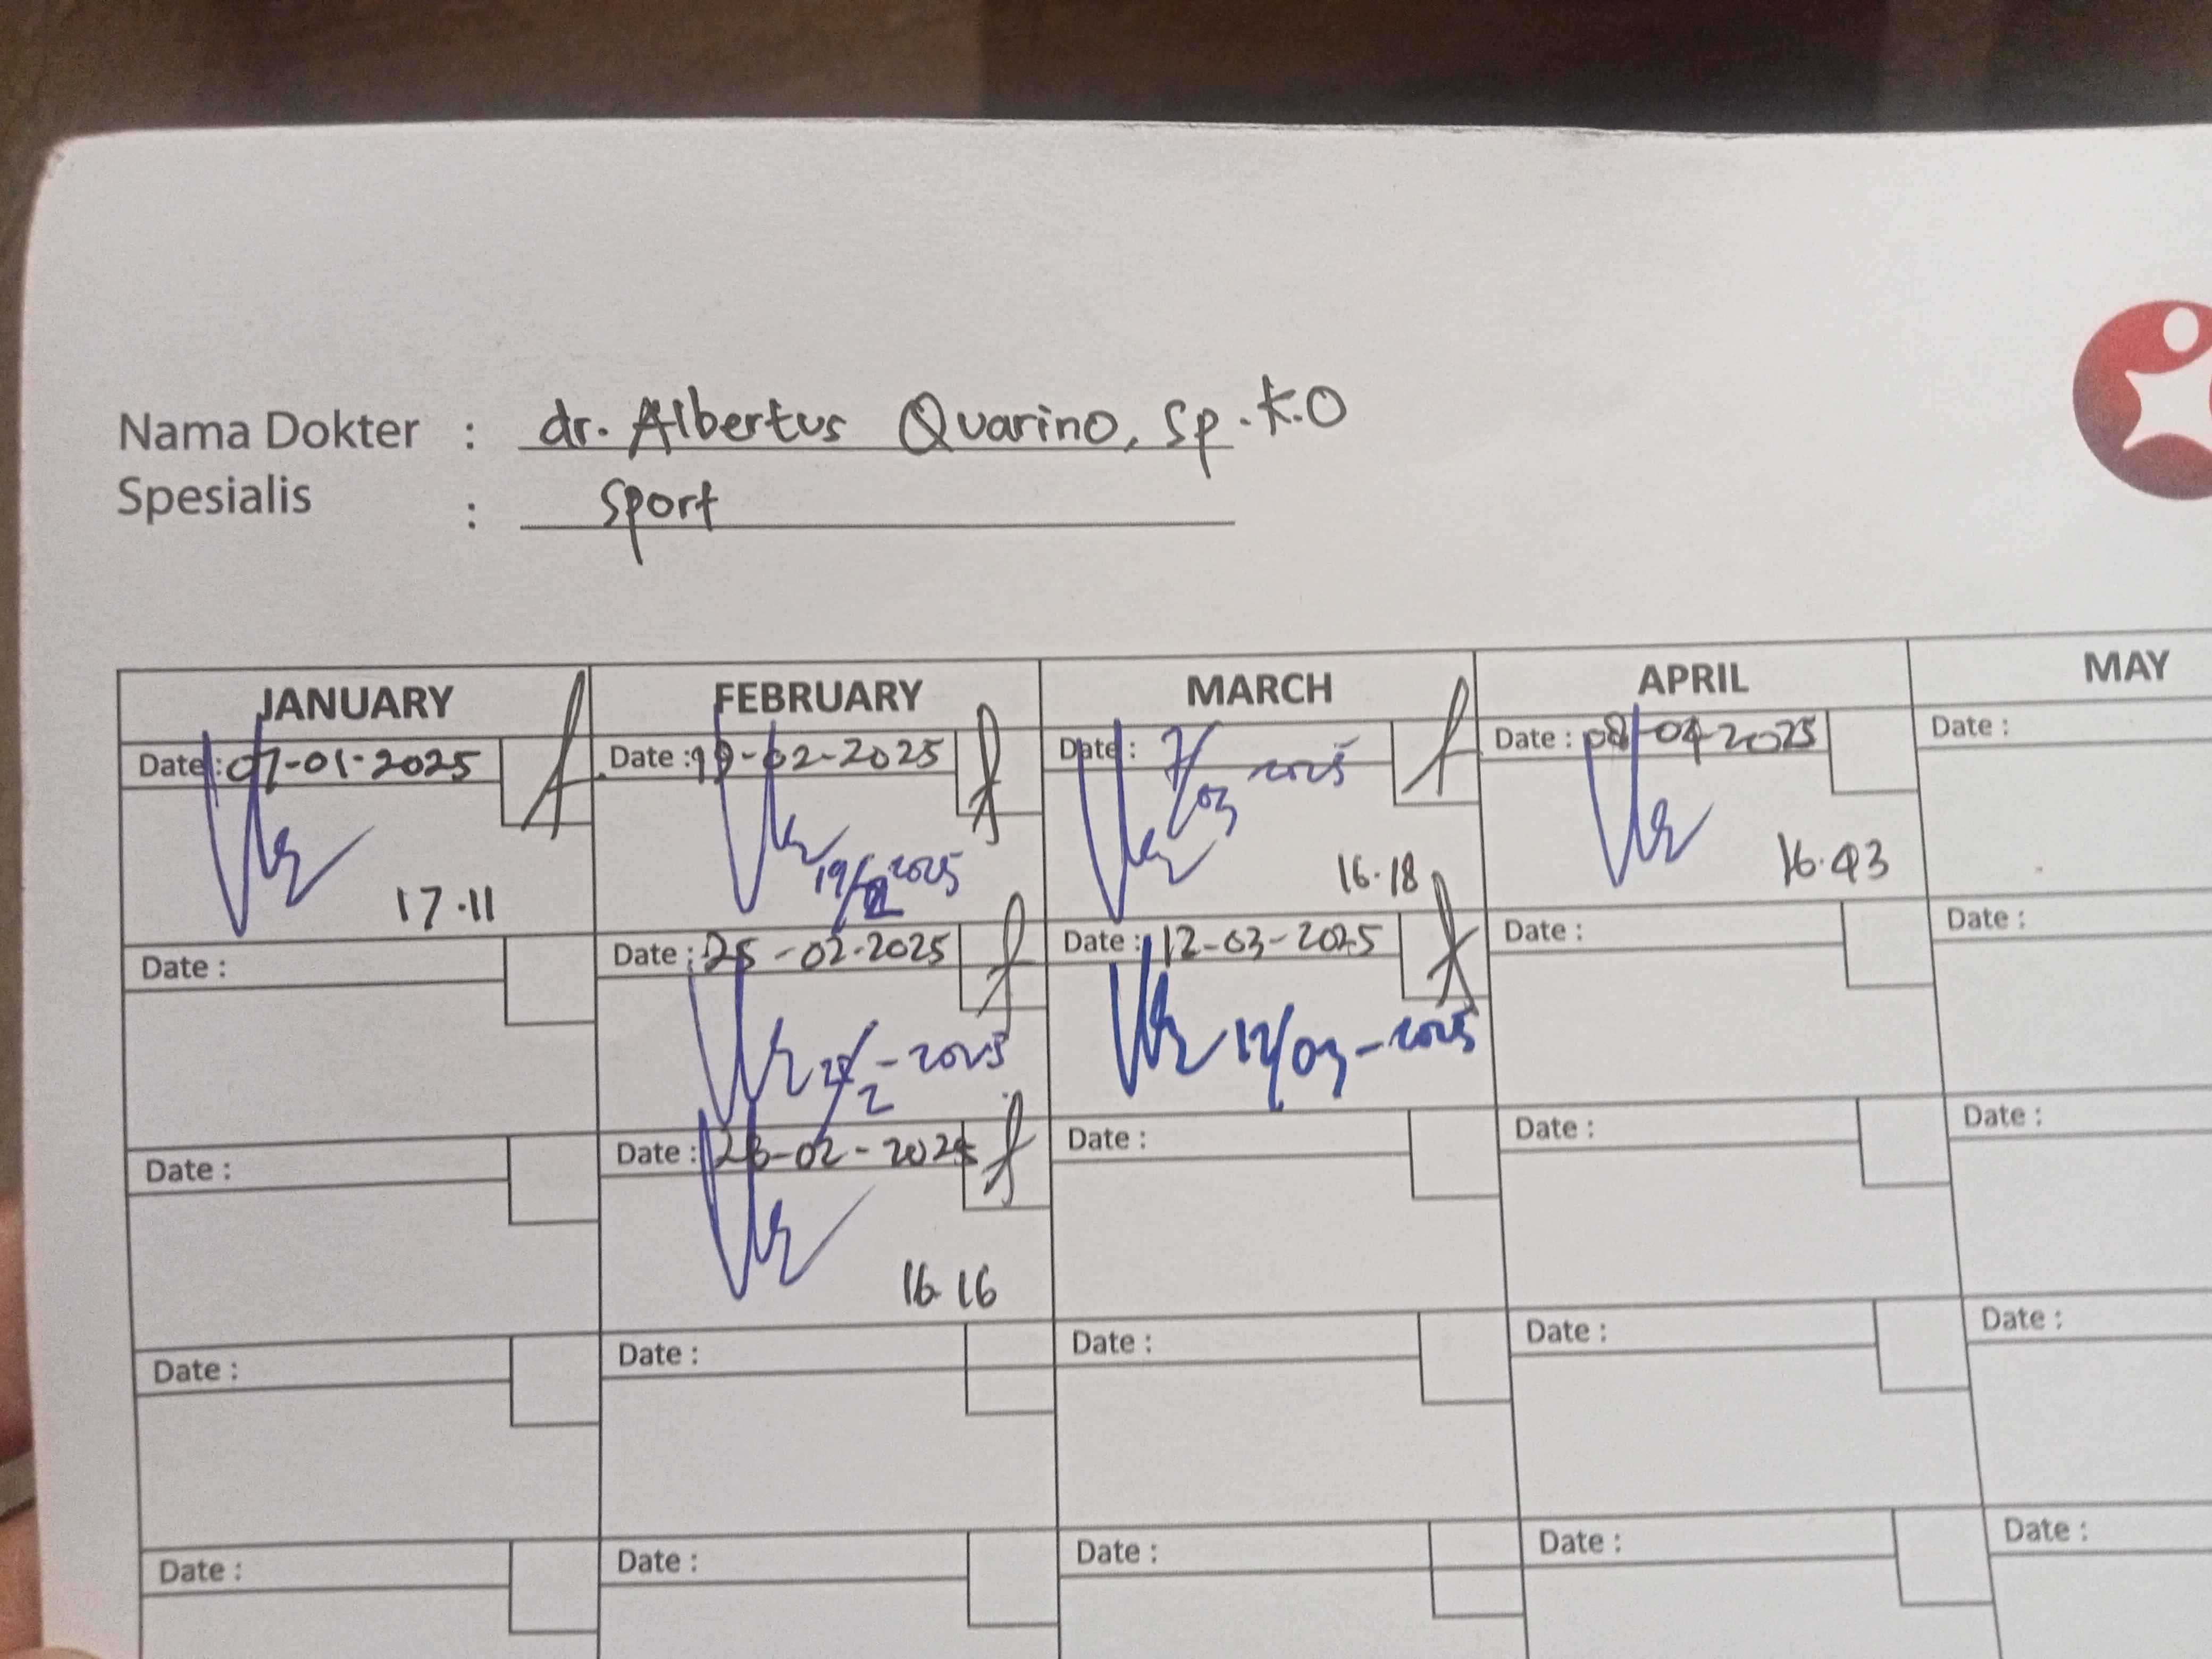 Nama Dokter : dr. Albertus Quarino, Sp.K.O
Spesialis : Sport
JANUARY FEBRUARY MARCH APRIL MAY
Date: 07-01-2025 Date: 19-02-2025 Date: 7/03 2025 Date: 08-04-2025 Date:
17.11 19/2 2025 16.18 16.43
Date: Date: 25-02-2025 Date: 12-03-2025 Date: Date:
2025 12/03-2025
Date: Date: Date: Date: Date:
16.16
Date: Date: Date: Date: Date:
Date: Date: Date: Date: Date: